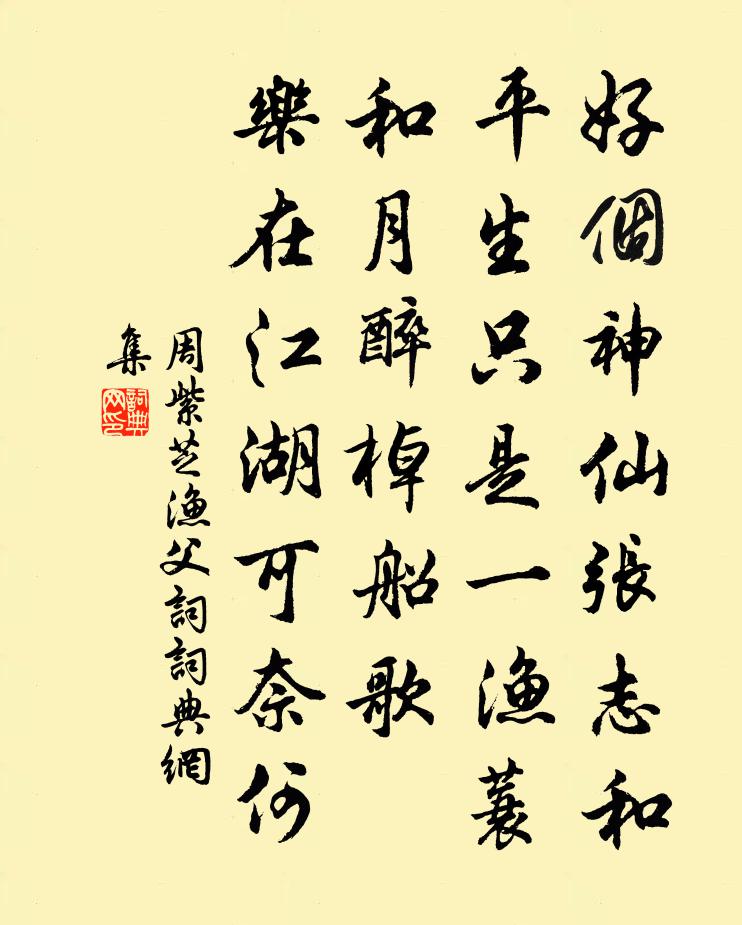 好個神仙張志和
平生只是一漁蓑
和月醉棹船歌
樂在江湖可奈何
周紫芝漁父詞詞典網
集
詞典
网印